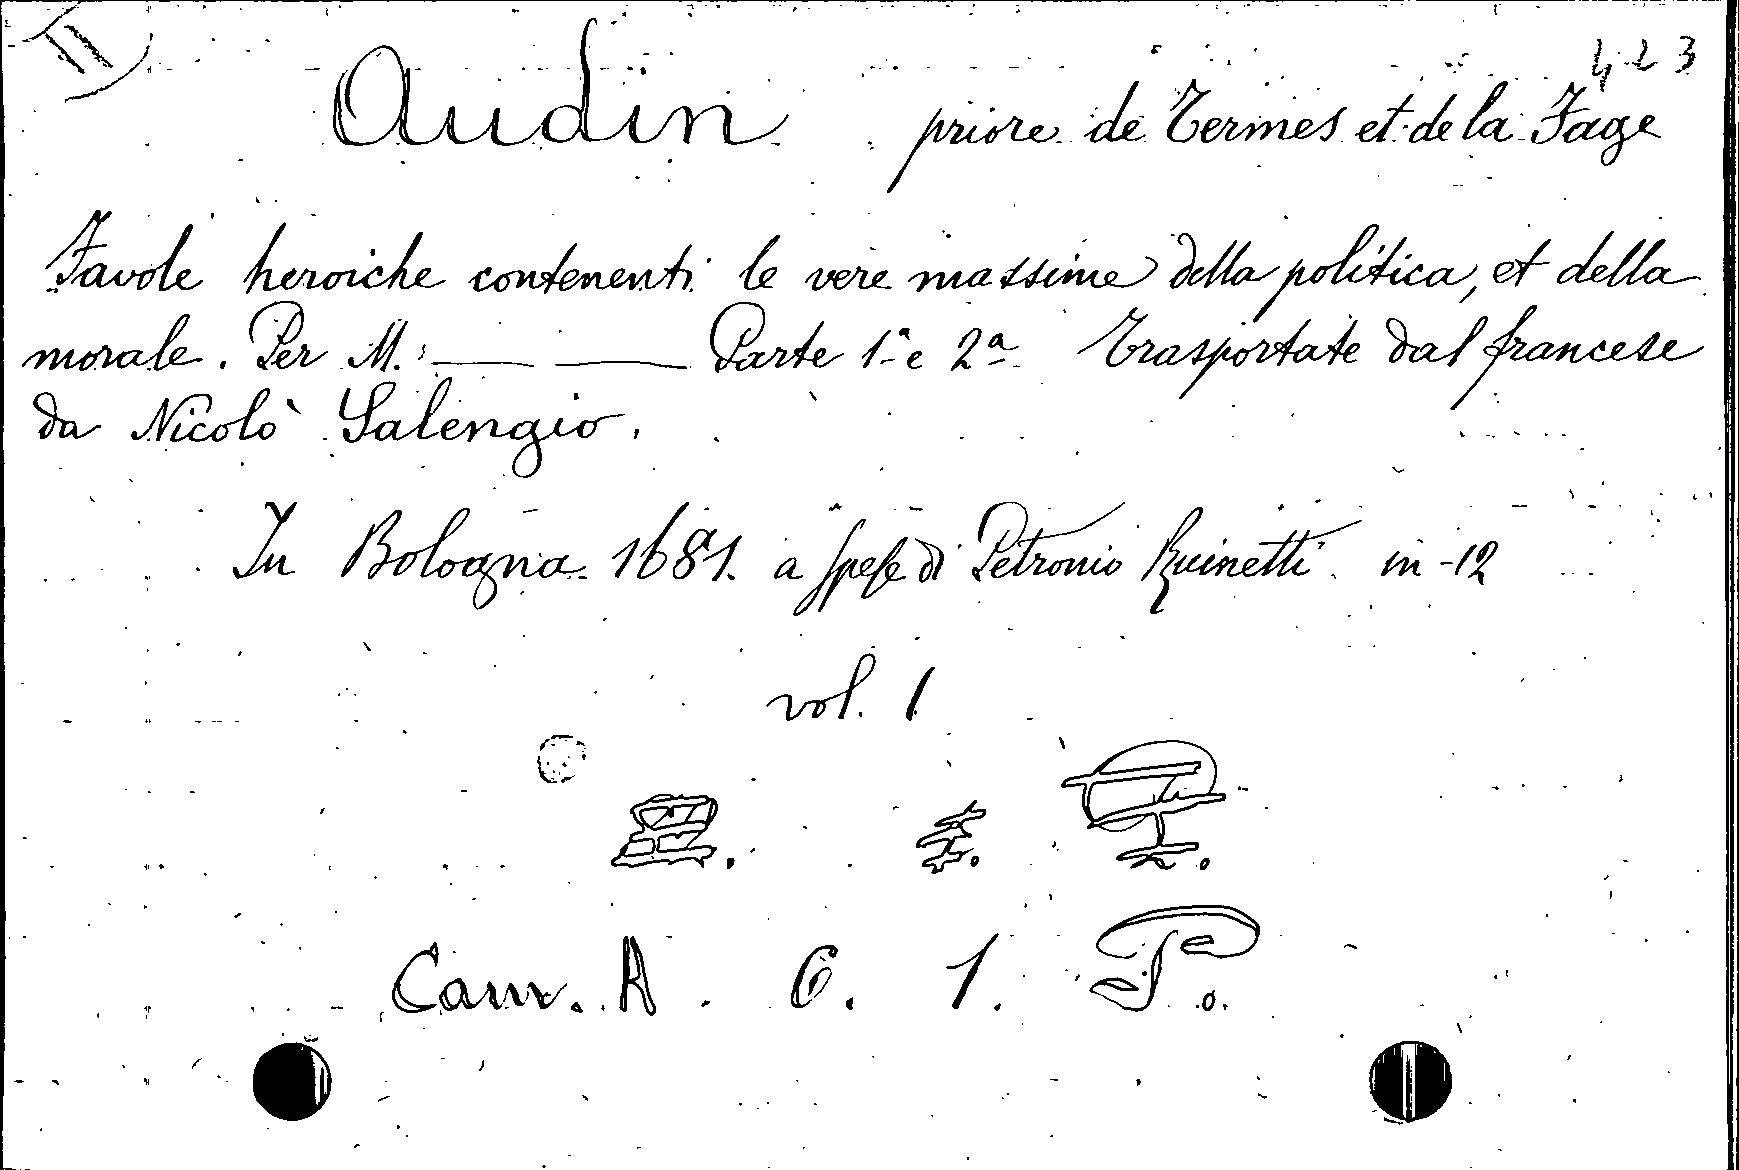 423
Audin priore de Termes et de la Fage
Favole heroiche contenenti le vere massime della politica, et della
morale. Per M.: ___ ___ Parte 1ª e 2ª Trasportate dal francese
da Nicolò Salengio.
In Bologna. 1681. a spese di Petronio Ruinetti in-12
vol. 1
Cam. A. 6. 1.